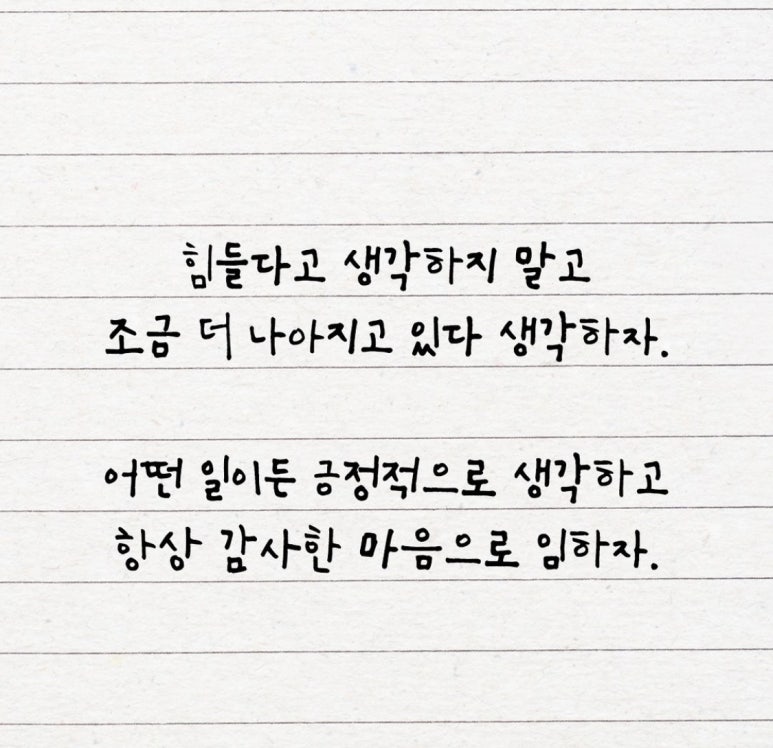 힘들다고 생각하지 말고
조금 더 나아지고 있다 생각하자.
어떤 일이든 긍정적으로 생각하고
항상 감사한 마음으로 임하자.